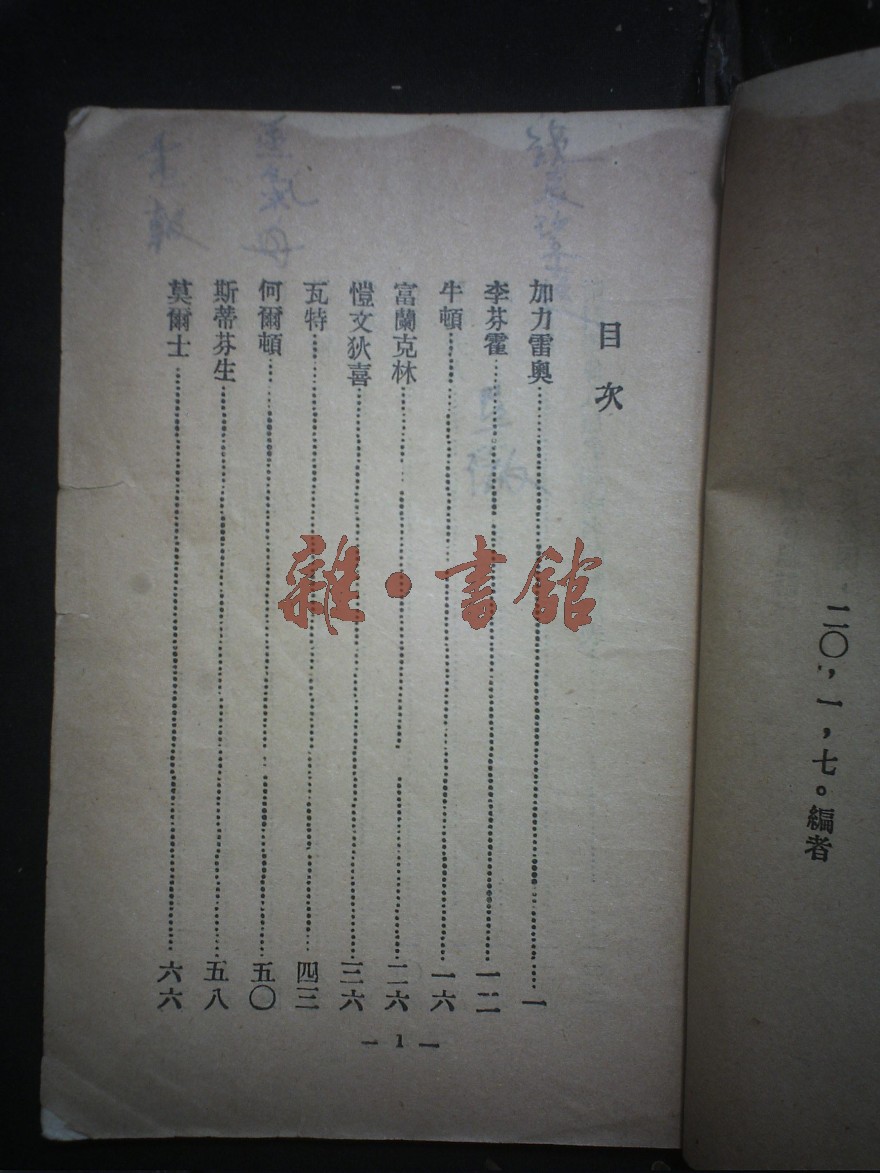 二〇，一，七。編者
目次
加力雷奧……一
李芬霍……一二
牛頓……一六
富蘭克林……二六
愷文狄喜……三六
瓦特……四三
何爾頓……五〇
斯蒂芬生……五八
莫爾士……六六
— 1 —
雜·書館